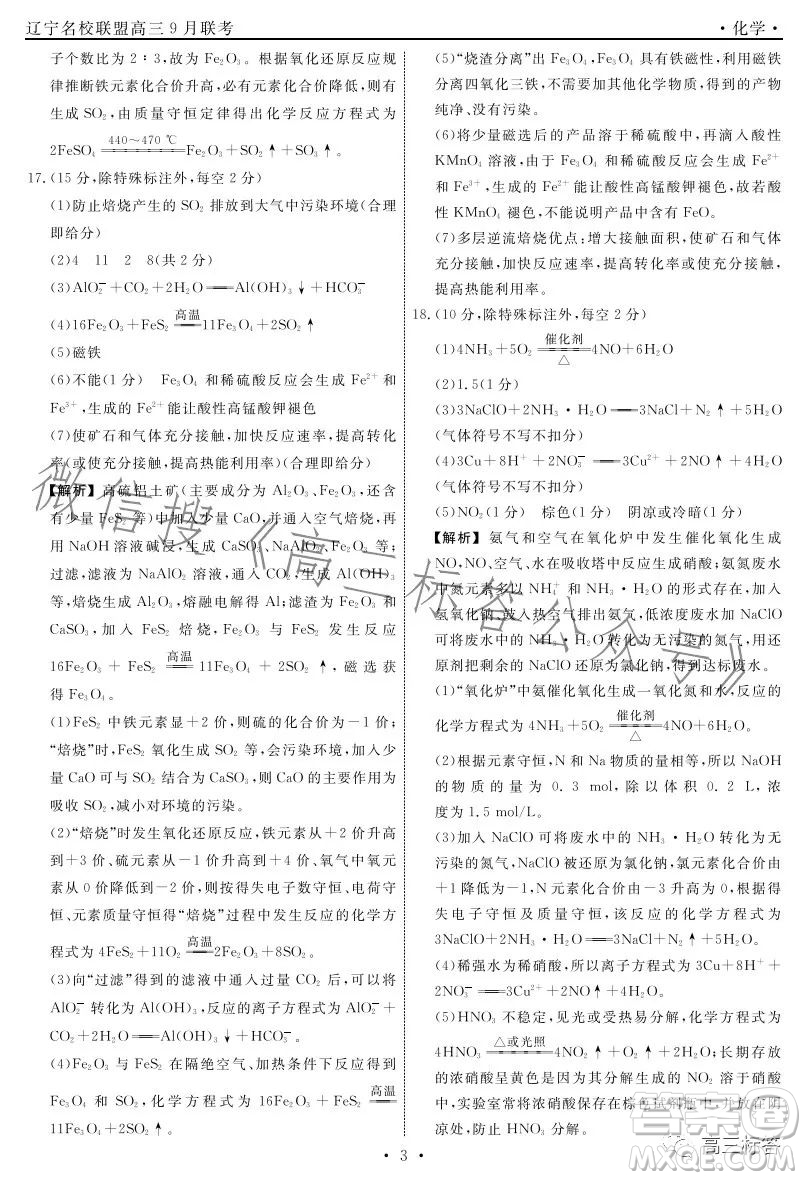 辽宁名校联盟高三9月联考
·化学·
子个数比为2∶3,故为Fe₂O₃。根据氧化还原反应规
律推断铁元素化合价升高,必有元素化合价降低,则有
生成SO₂,由质量守恒定律得出化学反应方程式为
2FeSO₄ ══(440～470 ℃) Fe₂O₃+SO₂↑+SO₃↑。
17.(15分,除特殊标注外,每空2分)
(1)防止焙烧产生的SO₂排放到大气中污染环境(合理
即给分)
(2)4 11 2 8(共2分)
(3)AlO₂⁻+CO₂+2H₂O══Al(OH)₃↓+HCO₃⁻
(4)16Fe₂O₃+FeS₂ ══(高温) 11Fe₃O₄+2SO₂↑
(5)磁铁
(6)不能(1分) Fe₃O₄和稀硫酸反应会生成Fe²⁺和
Fe³⁺,生成的Fe²⁺能让酸性高锰酸钾褪色
(7)使矿石和气体充分接触,加快反应速率,提高转化
率(或使充分接触,提高热能利用率)(合理即给分)
【解析】高硫铝土矿(主要成分为Al₂O₃、Fe₂O₃,还含
有少量FeS₂等)中加入少量CaO,并通入空气焙烧,再
用NaOH溶液碱浸,生成CaSO₄、NaAlO₂、Fe₂O₃等;
过滤,滤液中通入过量CO₂,生成Al(OH)₃,过滤、洗
涤,焙烧生成Al₂O₃,熔融电解得Al;滤渣为Fe₂O₃和
CaSO₄,加入FeS₂焙烧,Fe₂O₃与FeS₂发生反应
16Fe₂O₃+FeS₂ ══(高温) 11Fe₃O₄+2SO₂↑,磁选获
得Fe₃O₄。
(1)FeS₂中铁元素显+2价,则硫的化合价为-1价;
“焙烧”时,FeS₂氧化生成SO₂,会污染环境,加入少
量CaO可与SO₂结合为CaSO₄,则CaO的主要作用为
吸收SO₂,减小对环境的污染。
(2)“焙烧”时发生氧化还原反应,铁元素从+2价升高
到+3价、硫元素从-1价升高到+4价、氧气中氧元
素从0价降低到-2价,则按照得失电子数守恒、电荷守
恒和质量守恒可得“焙烧”过程中发生反应的化学方
程式为4FeS₂+11O₂ ══(高温) 2Fe₂O₃+8SO₂。
(3)向“过滤”得到的滤液中通入过量CO₂后,可以将
AlO₂⁻转化为Al(OH)₃,反应的离子方程式为AlO₂⁻+
CO₂+2H₂O══Al(OH)₃↓+HCO₃⁻。
(4)Fe₂O₃与FeS₂在隔绝空气、加热条件下反应得到
Fe₃O₄和SO₂,化学方程式为16Fe₂O₃+FeS₂ ══(高温)
11Fe₃O₄+2SO₂↑。
(5)“烧渣分离”出Fe₃O₄,Fe₃O₄具有铁磁性,利用磁
分离四氧化三铁,不需要加其他化学物质,得到的产物
纯净、没有污染。
(6)将少量磁选后的产品溶于稀硫酸中,再滴入酸性
KMnO₄溶液,由于Fe₃O₄与稀硫酸反应会生成Fe²⁺
和Fe³⁺,生成的Fe²⁺能让酸性高锰酸钾褪色,故若酸
性KMnO₄褪色,不能说明产品中含有FeO。
(7)多层逆流焙烧优点:增大接触面积,使矿石和气体
充分接触,加快反应速率,提高转化率或使充分接触,
提高热能利用率。
18.(10分,除特殊标注外,每空2分)
(1)4NH₃+5O₂ ══(催化剂/△) 4NO+6H₂O
(2)1.5(1分)
(3)3NaClO+2NH₃·H₂O══3NaCl+N₂↑+5H₂O
(气体符号不写不扣分)
(4)3Cu+8H⁺+2NO₃⁻══3Cu²⁺+2NO↑+4H₂O
(气体符号不写不扣分)
(5)NO₂(1分) 棕色(1分) 阴凉或冷暗(1分)
【解析】氨气和空气在氧化炉中发生催化氧化生成
NO,NO、空气、水在吸收塔中反应生成硝酸;氨氮废水
中氮元素多以NH₄⁺和NH₃·H₂O的形式存在,加入
氢氧化钠、鼓入热空气排出氨气,低浓度废水加NaClO
可将废水中的NH₃·H₂O转化为无污染的氮气,用还
原剂把剩余的NaClO还原为氯化钠,得到达标废水。
(1)“氧化炉”中氨催化氧化生成一氧化氮和水,反应的
化学方程式为4NH₃+5O₂ ══(催化剂/△) 4NO+6H₂O。
(2)根据元素守恒,N和Na物质的量相等,所以NaOH
的物质的量为0.3 mol,除以体积0.2 L,浓
度为1.5 mol/L。
(3)加入NaClO可将废水中的NH₃·H₂O转化为无
污染的氮气,NaClO被还原为氯化钠,氯元素化合价由
+1降低为-1,N元素化合价由-3升高为0,根据得
失电子守恒及质量守恒,该反应的化学方程式为
3NaClO+2NH₃·H₂O══3NaCl+N₂↑+5H₂O。
(4)稀强水为稀硝酸,所以离子方程式为3Cu+8H⁺+
2NO₃⁻══3Cu²⁺+2NO↑+4H₂O。
(5)HNO₃不稳定,见光或受热易分解,化学方程式为
4HNO₃ ══(△或光照) 4NO₂↑+O₂↑+2H₂O;长期存放
的浓硝酸呈黄色是因为生成的NO₂溶于浓硝酸
中,实验室常将浓硝酸保存在棕色试剂瓶中,并放在阴
凉处,防止HNO₃分解。
·3·
微信搜《高三标答公众号》
答案圈
高三标答